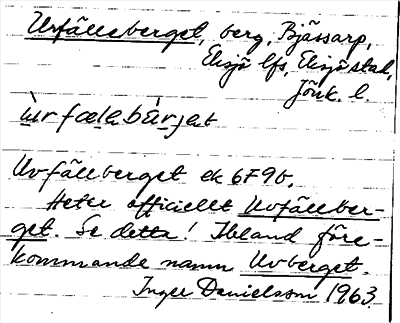 Urfälleberget, berg, Bjässarp,
Eksjö lfs, Eksjö stad,
Jönk. l.
ùrfælabàrjat
Uvfällberget ek 6F9b.
Heter officiellt Uvfällber-
get. Se detta! Ibland före-
kommande namn Uvberget.
Inger Danielsson 1963